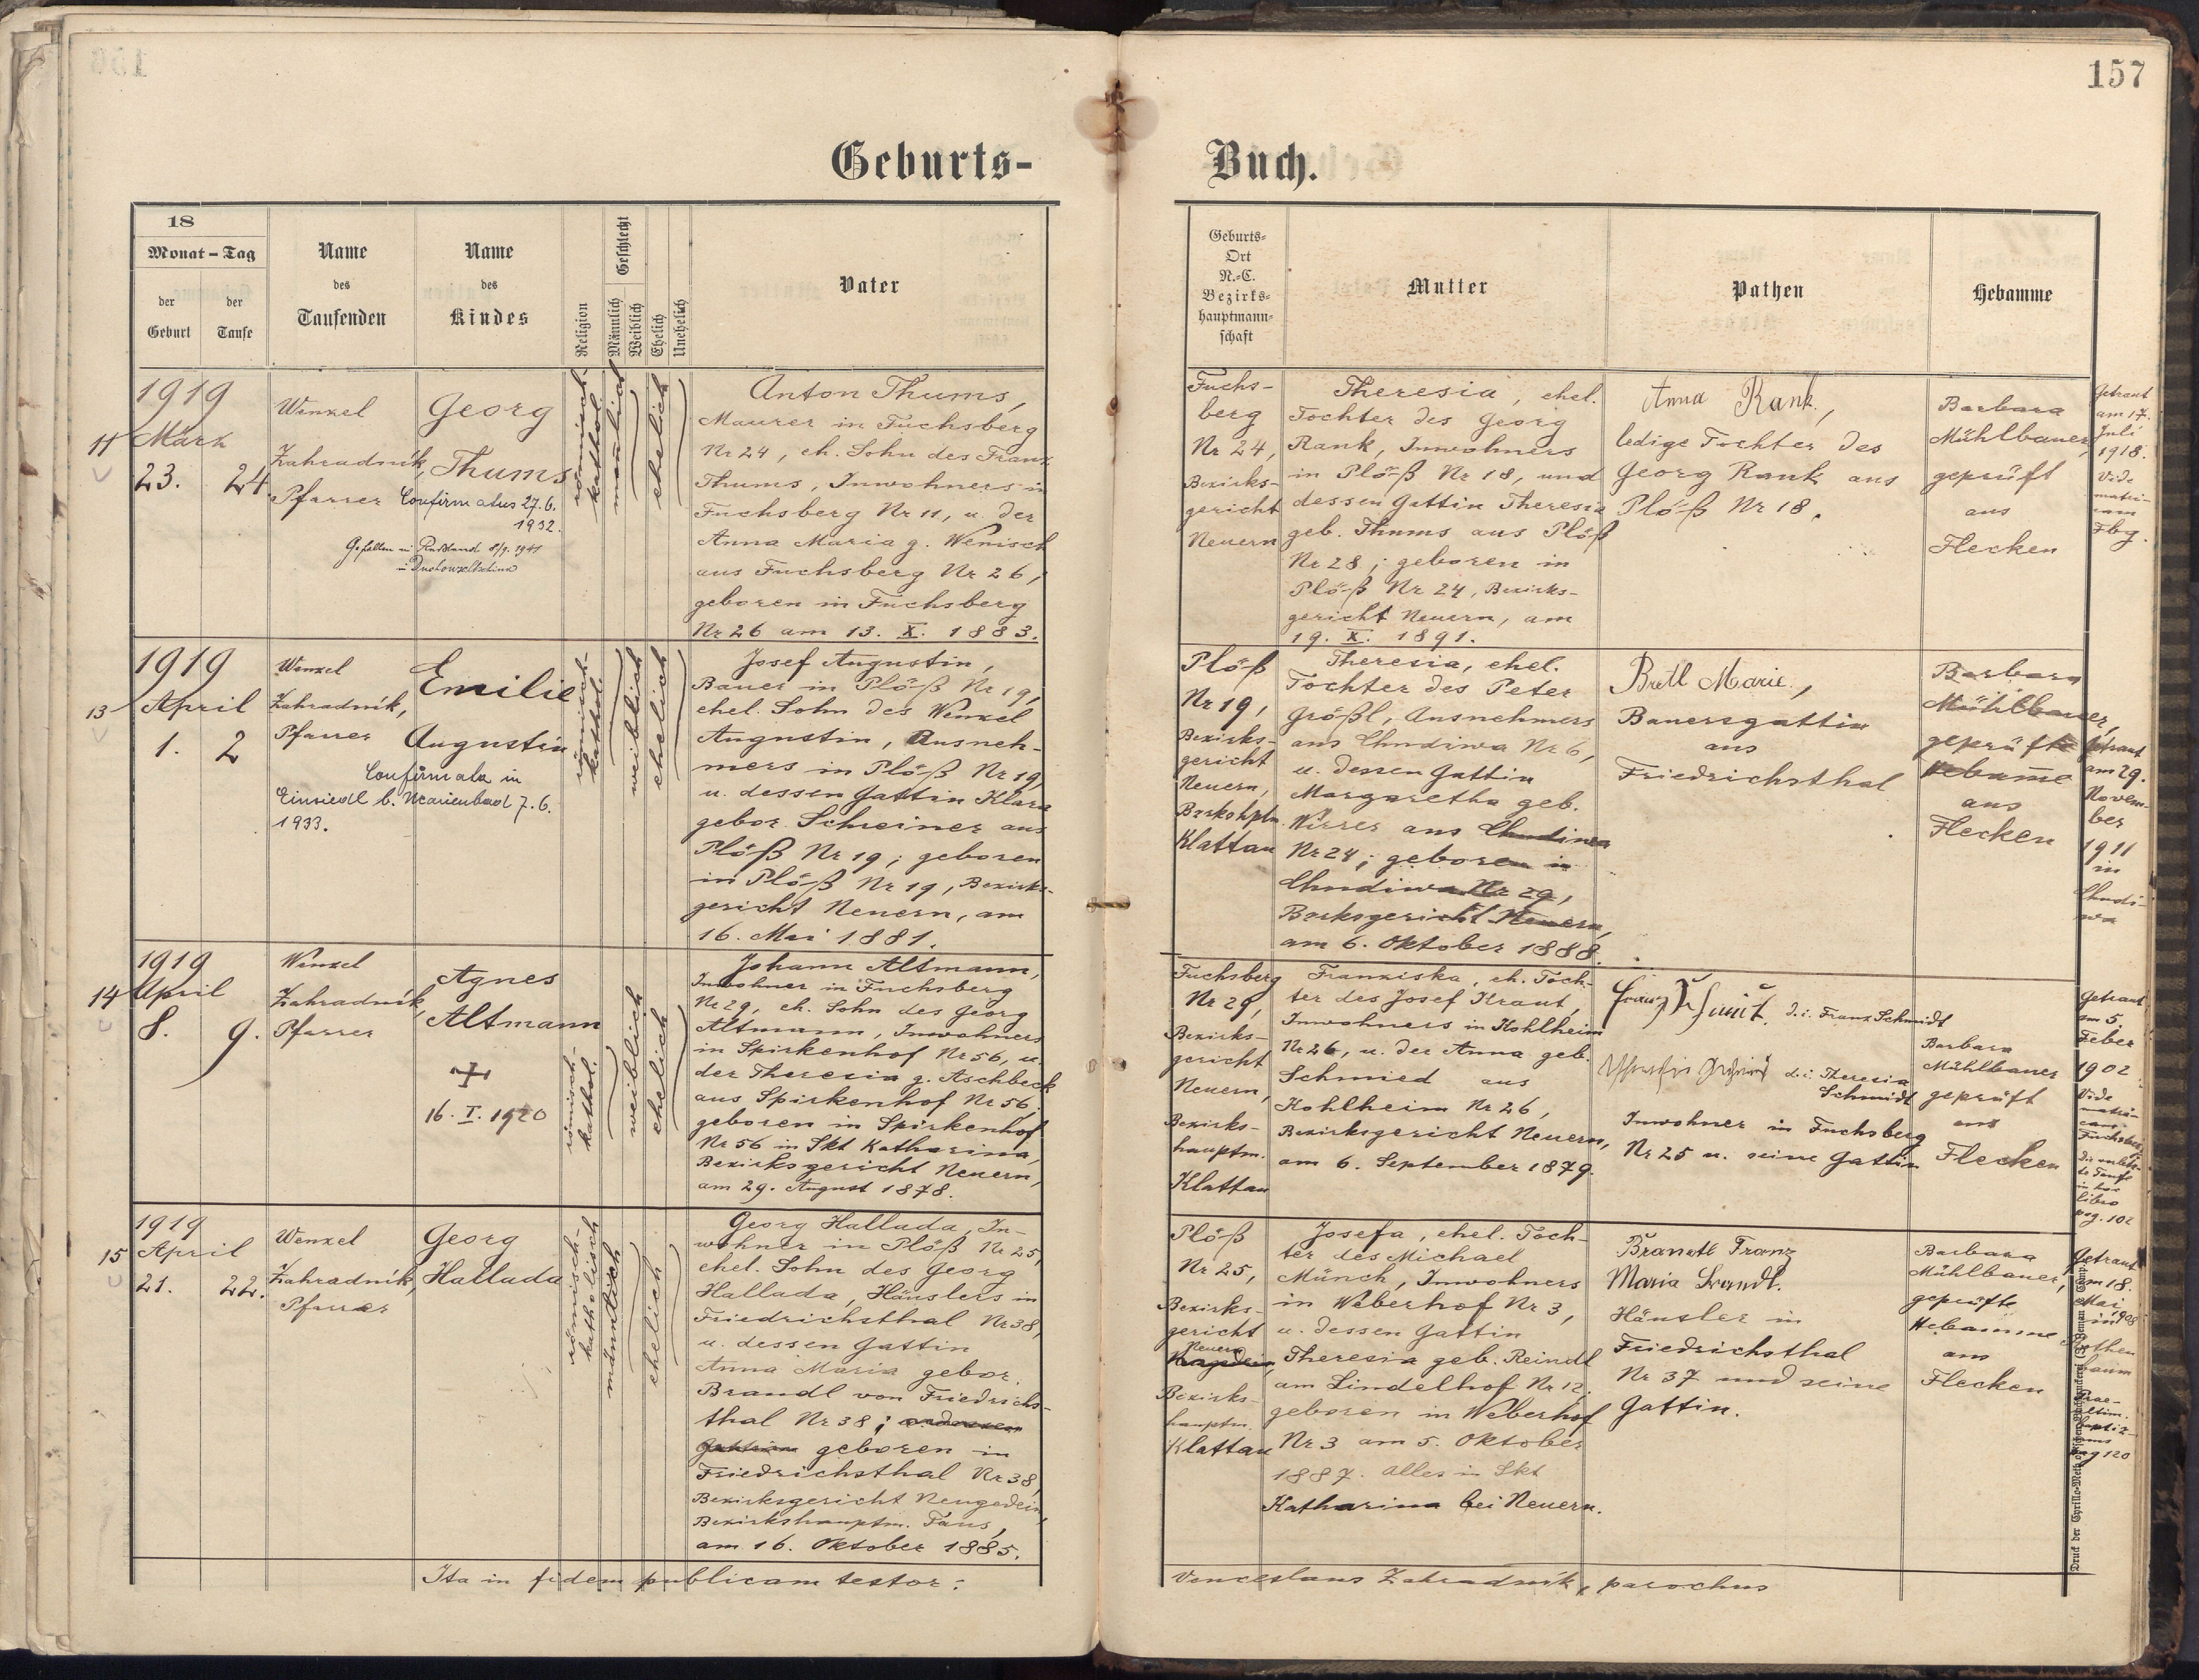 157
Geburts-
Buch.
18
Monat – Tag
der Geburt
der Taufe
Name des Taufenden
Name des Kindes
Religion
Geschlecht
Männlich
Weiblich
Ehelich
Unehelich
Vater
Geburts-
Ort
N.-C.
Bezirks-
hauptmann-
schaft
Mutter
Pathen
Hebamme
11
1919
März
23. 24.
Wenzel
Zahradník,
Pfarrer
Georg
Thums
Confirmatus 27.6.
1932.
Gefallen in Rußland 8/9. 1941
römisch-
kathol.
männlich
ehelich
Anton Thums,
Maurer in Fuchsberg
Nr 24, eh. Sohn des Franz
Thums, Inwohners in
Fuchsberg Nr 11, u. der
Anna Maria g. Wenisch
aus Fuchsberg Nr 26;
geboren in Fuchsberg
Nr 26 am 13. X. 1883.
Fuchs-
berg
Nr 24,
Bezirks-
gericht
Neuern
Theresia, ehel.
Tochter des Georg
Rank, Inwohners
in Plöß Nr 18, und
dessen Gattin Theresia
geb. Thums aus Plöß
Nr 28; geboren in
Plöß Nr 24, Bezirks-
gericht Neuern, am
19. X. 1891.
Anna Rank,
ledige Tochter des
Georg Rank aus
Plöß Nr 18.
Barbara
Mühlbauer,
geprüft
aus
Flecken
Getraut
am 17.
Juli
1918.
Vide
matri-
cam
Fbg.
13
1919
April
1. 2
Wenzel
Zahradník,
Pfarrer
Emilie
Augustin
Confirmata in
Einsiedl b. Marienbad 7.6.
1933.
römisch-
kathol.
weiblich
ehelich
Josef Augustin,
Bauer in Plöß Nr 19,
ehel. Sohn des Wenzel
Augustin, Ausneh-
mers in Plöß Nr 19,
u. dessen Gattin Klara
gebor. Schreiner aus
Plöß Nr 19; geboren
in Plöß Nr 19, Bezirks-
gericht Neuern, am
16. Mai 1881.
Plöß
Nr 19,
Bezirks-
gericht
Neuern,
Bzrkshptm.
Klattau
Theresia, ehel.
Tochter des Peter
Größl, Ausnehmers
aus Chudiwa Nr 6,
u. dessen Gattin
Margaretha geb.
Wirrer aus Chudiwa
Nr 24; geboren in
Chudiwa Nr 29,
Bzrksgericht Neuern,
am 6. Oktober 1888.
Bretl Marie,
Bauersgattin
aus
Friedrichsthal
Barbara
Mühlbauer,
geprüfte
Hebamme
aus
Flecken
Getraut
am 29.
Novem-
ber
1911
in
Chudi-
wa
14
1919
April
8. 9.
Wenzel
Zahradník,
Pfarrer
Agnes
Altmann
16. I. 1920
römisch-
kathol.
weiblich
ehelich
Johann Altmann,
Inwohner in Fuchsberg
Nr 29, eh. Sohn des Georg
Altmann, Inwohners
in Spirkenhof Nr 56, u.
der Theresia g. Aschbeck
aus Spirkenhof Nr 56,
geboren in Spirkenhof
Nr 56 in Skt Katharina,
Bezirksgericht Neuern,
am 29. August 1878.
Fuchsberg
Nr 29,
Bezirks-
gericht
Neuern,
Bezirks-
hauptm.
Klattau
Franziska, eh. Toch-
ter des Josef Kraut,
Inwohners in Kohlheim
Nr 26, u. der Anna geb.
Schmied aus
Kohlheim Nr 26,
Bezirksgericht Neuern,
am 6. September 1879.
Franz Schmit. d. i. Franz Schmidt
d. i. Theresia
Schmidt
Inwohner in Fuchsberg
Nr 25 u. seine Gattin
Barbara
Mühlbauer
geprüft
aus
Flecken
Getraut
am 5.
Feber
1902
Vide
matri-
cam
Fuchsberg
in hoc
libro
pag. 102
15
1919
April
21. 22.
Wenzel
Zahradník,
Pfarrer
Georg
Hallada
römisch-
katholisch
männlich
ehelich
Georg Hallada, In-
wohner in Plöß Nr 25,
ehel. Sohn des Georg
Hallada, Häuslers in
Friedrichsthal Nr 38,
u. dessen Gattin
Anna Maria gebor.
Brandl von Friedrichs-
thal Nr 38;
geboren in
Friedrichsthal Nr 38,
Bezirksgericht Neugedein,
Bezirkshauptm. Taus,
am 16. Oktober 1885.
Plöß
Nr 25,
Bezirks-
gericht
Neuern
Bezirks-
hauptm.
Klattau
Josefa, ehel. Toch-
ter des Michael
Münch, Inwohners
in Weberhof Nr 3,
u. dessen Gattin
Theresia geb. Reindl
am Lindelhof Nr 12.
geboren in Weberhof
Nr 3 am 5. Oktober
1887. alles in Skt
Katharina bei Neuern.
Brandtl Franz
Maria Brandl.
Häusler in
Friedrichsthal
Nr 37 und seine
Gattin.
Barbara
Mühlbauer,
geprüfte
Hebamme
aus
Flecken
Getraut
am 18.
Mai
1908
in
Rothen
baum
pag 120
Ita in fidem publicam testor:
Venceslaus Zahradník, parochus